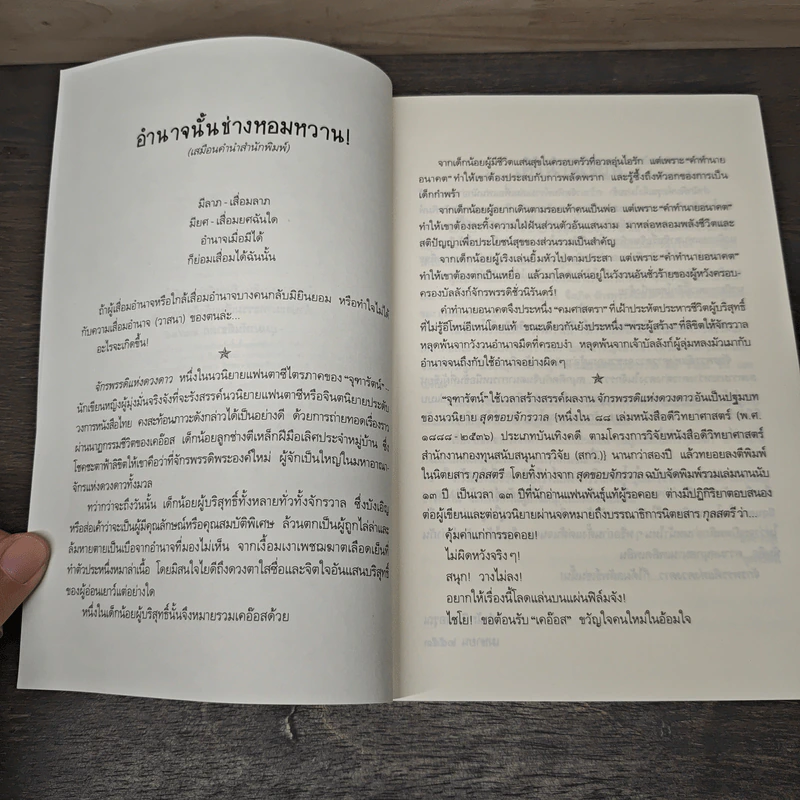 อำนาจนั้นช่างหอมหวาน!
(เสมือนคำนำสำนักพิมพ์)
มีลาภ - เสื่อมลาภ
มียศ - เสื่อมยศฉันใด
อำนาจเมื่อมีได้
ก็ย่อมเสื่อมได้ฉันนั้น
ถ้าผู้เสื่อมอำนาจหรือใกล้เสื่อมอำนาจบางคนกลับมิยินยอม หรือทำใจไม่ได้
กับความเสื่อมอำนาจ (วาสนา) ของตนล่ะ...
อะไรจะเกิดขึ้น!
จักรพรรดิแห่งดวงดาว หนึ่งในนวนิยายแฟนตาซีไตรภาคของ "จุฑารัตน์"-
นักเขียนหญิงผู้มุ่งมั่นจริงจังที่จะรังสรรค์นวนิยายแฟนตาซีหรือจินตนิยายประดับ
วงการหนังสือไทย คงสะท้อนภาวะดังกล่าวได้เป็นอย่างดี ด้วยการถ่ายทอดเรื่องราว
ผ่านนาฏกรรมชีวิตของเคอ๊อส เด็กน้อยลูกช่างตีเหล็กฝีมือเลิศประจำหมู่บ้าน ซึ่ง
โชคชะตาฟ้าลิขิตให้เขาคือว่าที่จักรพรรดิพระองค์ใหม่ ผู้จักเป็นใหญ่ในมหาอาณา-
จักรแห่งดวงดาวทั้งมวล
ทว่ากว่าจะถึงวันนั้น เด็กน้อยผู้บริสุทธิ์ทั้งหลายทั่วทั้งจักรวาล ซึ่งบังเอิญ
หรือส่อเค้าว่าจะเป็นผู้มีคุณลักษณ์หรือคุณสมบัติพิเศษ ล้วนตกเป็นผู้ถูกไล่ล่าและ
ล้มหายตายเป็นเบือจากอำนาจที่มองไม่เห็น จากเงื้อมเงาเพชฌฆาตเลือดเย็นที่
ทำตัวประหนึ่งหมาล่าเนื้อ โดยมิสนใจไยดีถึงดวงตาใสซื่อและจิตใจอันแสนบริสุทธิ์
ของผู้อ่อนเยาว์แต่อย่างใด
หนึ่งในเด็กน้อยผู้บริสุทธิ์นั้นจึงหมายรวมเคอ๊อสด้วย
จากเด็กน้อยผู้มีชีวิตแสนสุขในครอบครัวที่อวลอุ่นไอรัก แต่เพราะ "คำทำนาย
อนาคต" ทำให้เขาต้องประสบกับการพลัดพราก และรู้ซึ้งถึงหัวอกของการเป็น
เด็กกำพร้า
จากเด็กน้อยผู้อยากเดินตามรอยเท้าคนเป็นพ่อ แต่เพราะ "คำทำนายอนาคต"
ทำให้เขาต้องละทิ้งความใฝ่ฝันส่วนตัวอันแสนงาม มาหล่อหลอมพลังชีวิตและ
สติปัญญาเพื่อประโยชน์สุขของส่วนรวมเป็นสำคัญ
จากเด็กน้อยผู้เริงเล่นยิ้มหัวไปตามประสา แต่เพราะ "คำทำนายอนาคต"
ทำให้เขาต้องตกเป็นเหยื่อ แล้วมาโลดแล่นอยู่ในวังวนอันชั่วร้ายของผู้หวังครอบ-
ครองบัลลังก์จักรพรรดิชั่วนิรันดร์!
คำทำนายอนาคตจึงประหนึ่ง "คมศาสตรา" ที่เฝ้าประหัตประหารชีวิตผู้บริสุทธิ์
ที่ไม่รู้อีโหน่อีเหน่โดยแท้ ขณะเดียวกันยังประหนึ่ง "พระผู้สร้าง" ที่ลิขิตให้จักรวาล
หลุดพ้นจากวังวนอำนาจมืดที่ครอบงำ หลุดพ้นจากเจ้าบัลลังก์ผู้ลุ่มหลงมัวเมากับ
อำนาจจนถึงกับใช้อำนาจอย่างผิดๆ
"จุฑารัตน์" ใช้เวลาสร้างสรรค์ผลงาน จักรพรรดิแห่งดวงดาว อันเป็นปฐมบท
ของนวนิยาย สุดขอบจักรวาล (หนึ่งใน ๘๘ เล่มหนังสือดีวิทยาศาสตร์ (พ.ศ.
๑๘๘๘ - ๒๕๓๖) ประเภทบันเทิงคดี ตามโครงการวิจัยหนังสือดีวิทยาศาสตร์
สำนักงานกองทุนสนับสนุนการวิจัย (สกว.)) นานกว่าสองปี แล้วทยอยลงตีพิมพ์
ในนิตยสาร กุลสตรี โดยทิ้งห่างจาก สุดขอบจักรวาล ฉบับจัดพิมพ์รวมเล่มนานนับ
๑๓ ปี เป็นเวลา ๑๓ ปีที่นักอ่านแฟนพันธุ์แท้ผู้รอคอย ต่างมีปฏิกิริยาตอบสนอง
ต่อผู้เขียนและต่อนวนิยายผ่านจดหมายถึงบรรณาธิการนิตยสาร กุลสตรี ว่า...
คุ้มค่าแก่การรอคอย!
ไม่ผิดหวังจริงๆ!
สนุก! วางไม่ลง!
อยากให้เรื่องนี้โลดแล่นบนแผ่นฟิล์มจัง!
ไชโย! ขอต้อนรับ "เคอ๊อส" ขวัญใจคนใหม่ในอ้อมใจ